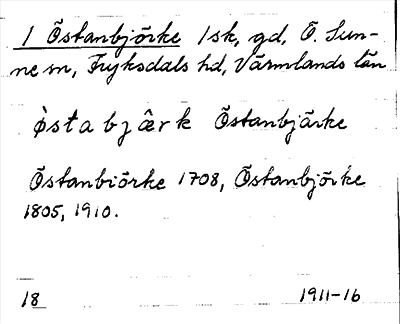 1 Östanbjörke 1sk, gd, Ö. Sun-
ne sn, Fryksdals hd, Värmlands län
östabjærk Östanbjärke
Östanbiörke 1708, Östanbjörke
1805, 1910.
18 1911-16